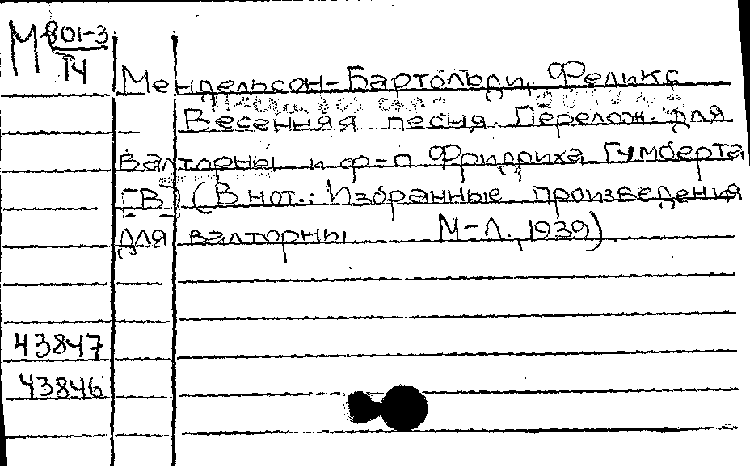 М 801-3
14
Мендельсон-Бартольди, Феликс
Весенняя песня. Перелож. для
валторны и ф-п Фридриха Гумберта
[В] (В нот.: Избранные произведения
для валторны М-Л., 1939)
43847
43846